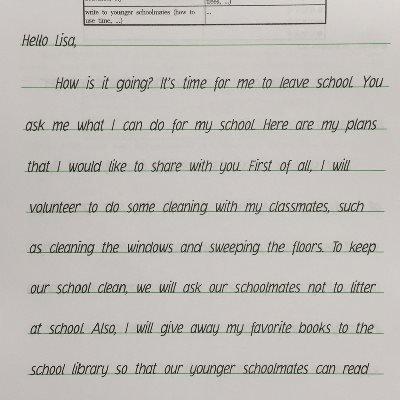 trees, ...)
write to younger schoolmates (how to use time, ...)
...
Hello Lisa,
How is it going? It's time for me to leave school. You
ask me what I can do for my school. Here are my plans
that I would like to share with you. First of all, I will
volunteer to do some cleaning with my classmates, such
as cleaning the windows and sweeping the floors. To keep
our school clean, we will ask our schoolmates not to litter
at school. Also, I will give away my favorite books to the
school library so that our younger schoolmates can read